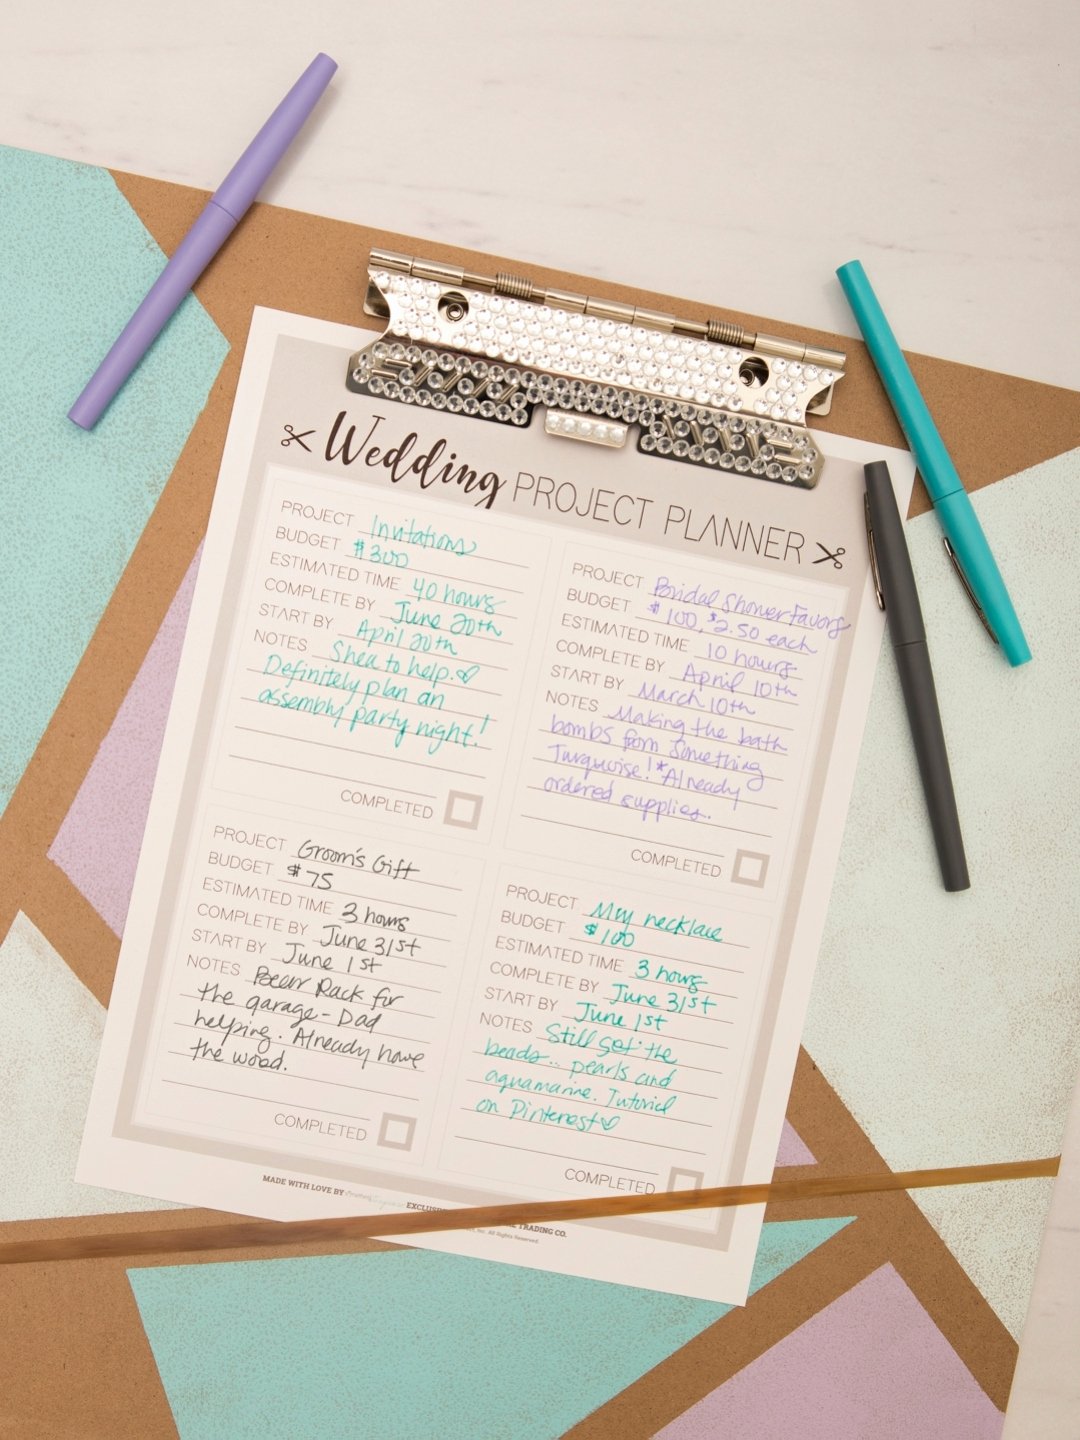 Wedding PROJECT PLANNER
PROJECT Invitations
BUDGET $300
ESTIMATED TIME 40 hours
COMPLETE BY June 20th
START BY April 20th
NOTES Shea to help.♡
Definitely plan an
assembly party night!
COMPLETED
PROJECT Bridal Shower Favors
BUDGET $100, $2.50 each
ESTIMATED TIME 10 hours
COMPLETE BY April 10th
START BY March 10th
NOTES Making the bath
bombs from Something
Turquoise! *Already
ordered supplies.
COMPLETED
PROJECT Groom's Gift
BUDGET $75
ESTIMATED TIME 3 hours
COMPLETE BY June 31st
START BY June 1st
NOTES Beer Rack for
the garage - Dad
helping. Already have
the wood.
COMPLETED
PROJECT My necklace
BUDGET $100
ESTIMATED TIME 3 hours
COMPLETE BY June 31st
START BY June 1st
NOTES Still get the
beads.. pearls and
aquamarine. Tutorial
on Pinterest♡
COMPLETED
MADE WITH LOVE BY TRADING CO.
Inc. All Rights Reserved.